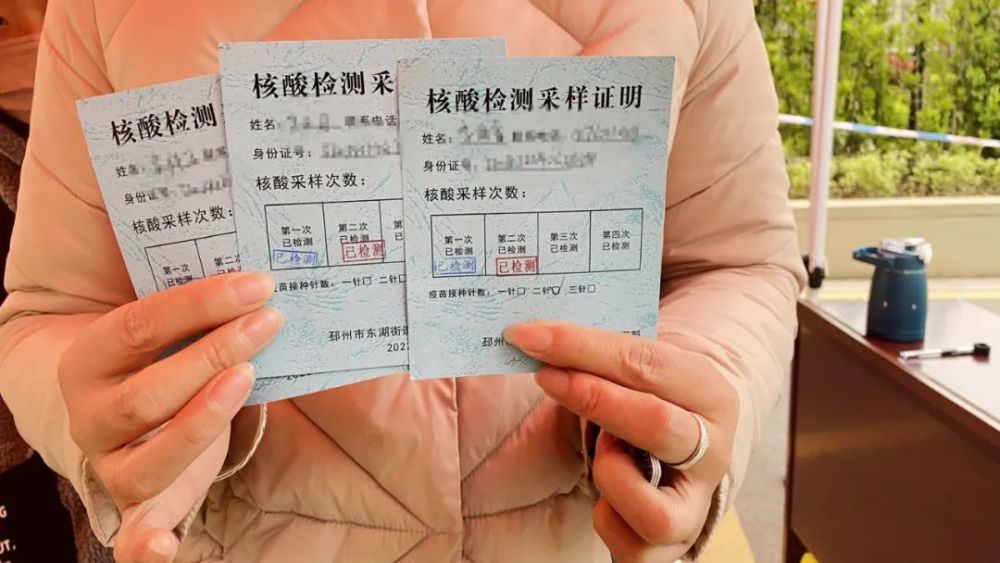 核酸检测
姓名:
身份证
核酸采样次数:
第一次
已检测
第二
已检
核酸检测采
姓名: 联系电话
身份证号:
核酸采样次数:
第一次
已检测
第二次
已检测
已检测
已检测
疫苗接种针数: 一针□ 二针□
邳州市东湖街道
202
核酸检测采样证明
姓名:
身份证号:
核酸采样次数:
第一次
已检测
第二次
已检测
第三次
已检测
第四次
已检测
已检测
已检测
疫苗接种针数: 一针□ 二针□ 三针□
邳州